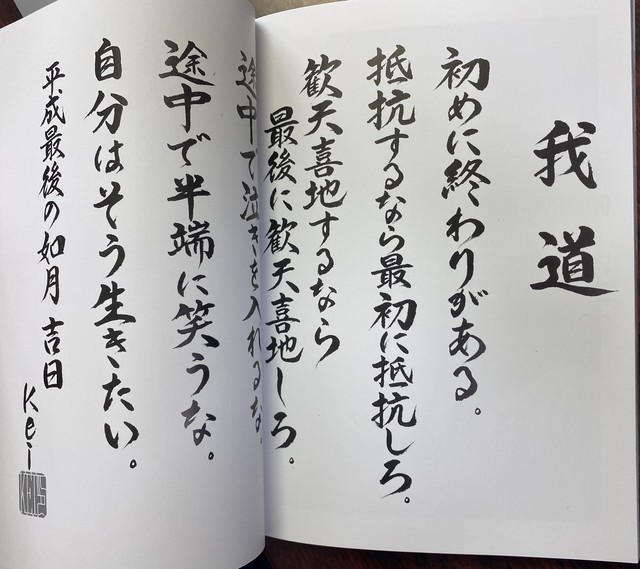 我道
初めに終わりがある。
抵抗するなら最初に抵抗しろ。
歓天喜地するなら
最後に歓天喜地しろ。
途中で泣きを入れるな。
途中で半端に笑うな。
自分はそう生きたい。
平成最後の如月 吉日
Kei